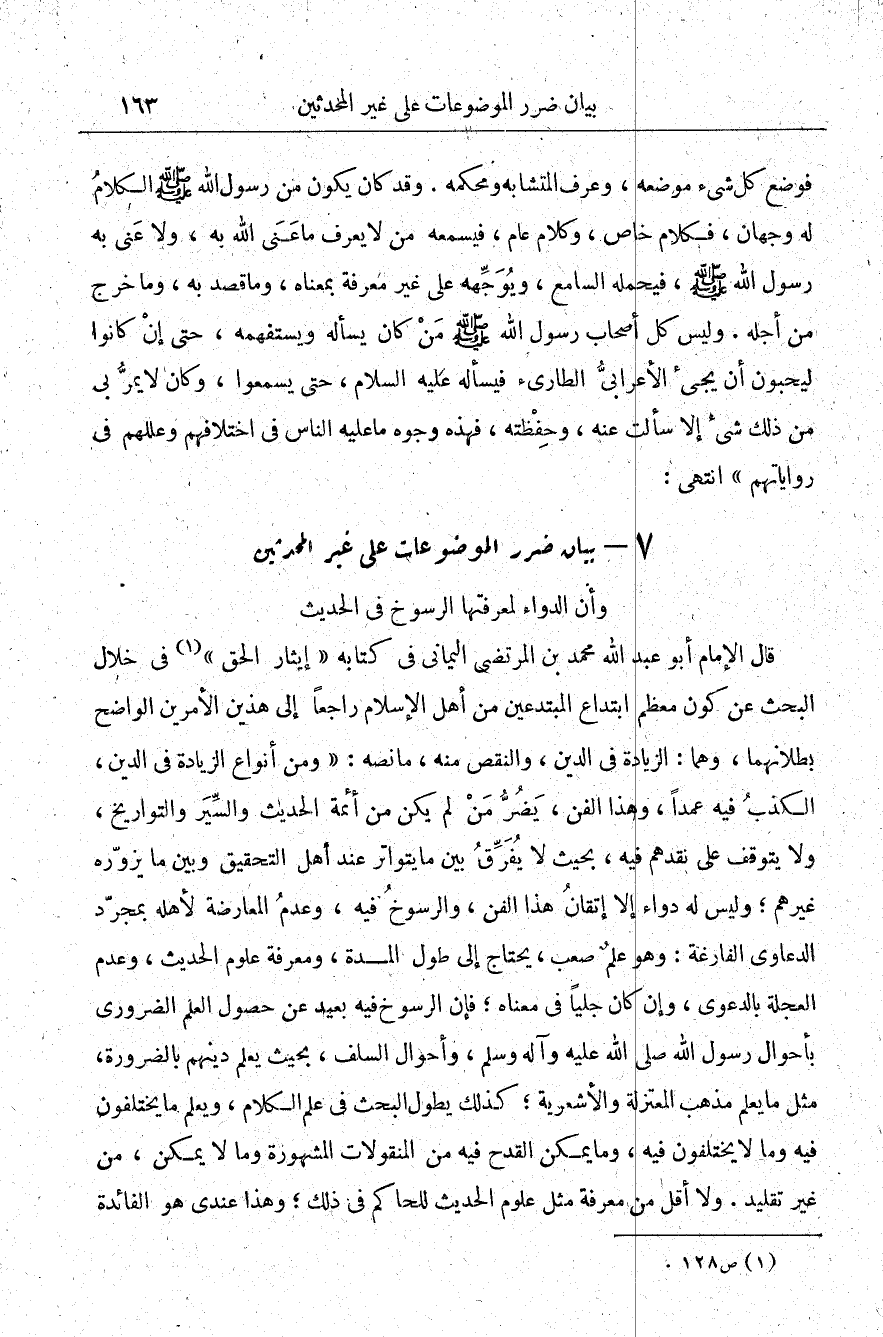 بيان ضرر الموضوعات على غير المحدثين ١٦٣
فوضع كل شىء موضعه ، وعرف المتشابه ومحكمه . وقد كان يكون من رسول الله ﷺ الكلامُ
له وجهان ، فكلام خاص ، وكلام عام ، فيسمعه من لايعرف ماعَنَى الله به ، ولا عَنى به
رسول الله ﷺ ، فيحمله السامع ، ويُوَجِّهه على غير معرفة بمعناه ، وماقصد به ، وماخرج
من أجله . وليس كل أصحاب رسول الله ﷺ مَنْ كان يسأله ويستفهمه ، حتى إنْ كانوا
ليحبون أن يجىء الأعرابىُّ الطارىء فيسأله عليه السلام ، حتى يسمعوا ، وكان لايمرُّ بى
من ذلك شىء إلا سألت عنه ، وحفِظْته ، فهذه وجوه ماعليه الناس فى اختلافهم وعللهم فى
رواياتهم » انتهى :
٧ — بيان ضرر الموضوعات على غير المحدثين
وأن الدواء لمعرفتها الرسوخ فى الحديث
قال الإمام أبو عبد الله محمد بن المرتضى اليمانى فى كتابه « إيثار الحق »(١) فى خلال
البحث عن كون معظم ابتداع المبتدعين من أهل الإسلام راجعاً إلى هذين الأمرين الواضح
بطلانهما ، وهما : الزيادة فى الدين ، والنقص منه ، مانصه : « ومن أنواع الزيادة فى الدين ،
الكذبُ فيه عمداً ، وهذا الفن ، يَضُرُّ مَنْ لم يكن من أئمة الحديث والسِّيَر والتواريخ ،
ولا يتوقف على نقدهم فيه ، بحيث لا يُفَرِّقُ بين مايتواتر عند أهل التحقيق وبين ما يزوّره
غيرهم ؛ وليس له دواء إلا إتقانُ هذا الفن ، والرسوخُ فيه ، وعدمُ المعارضة لأهله بمجرّد
الدعاوى الفارغة : وهو علمٌ صعب ، يحتاج إلى طول المدة ، ومعرفة علوم الحديث ، وعدم
العجلة بالدعوى ، وإن كان جلياً فى معناه ؛ فإن الرسوخ فيه بعيد عن حصول العلم الضرورى
بأحوال رسول الله صلى الله عليه وآله وسلم ، وأحوال السلف ، بحيث يعلم دينهم بالضرورة،
مثل مايعلم مذهب المعتزلة والأشعرية ؛ كذلك يطول البحث فى علم الكلام ، ويعلم مايختلفون
فيه وما لايختلفون فيه ، ومايمكن القدح فيه من المنقولات المشهورة وما لا يمكن ، من
غير تقليد . ولا أقل من معرفة مثل علوم الحديث للحاكم فى ذلك ؛ وهذا عندى هو الفائدة
(١) ص١٢٨ .